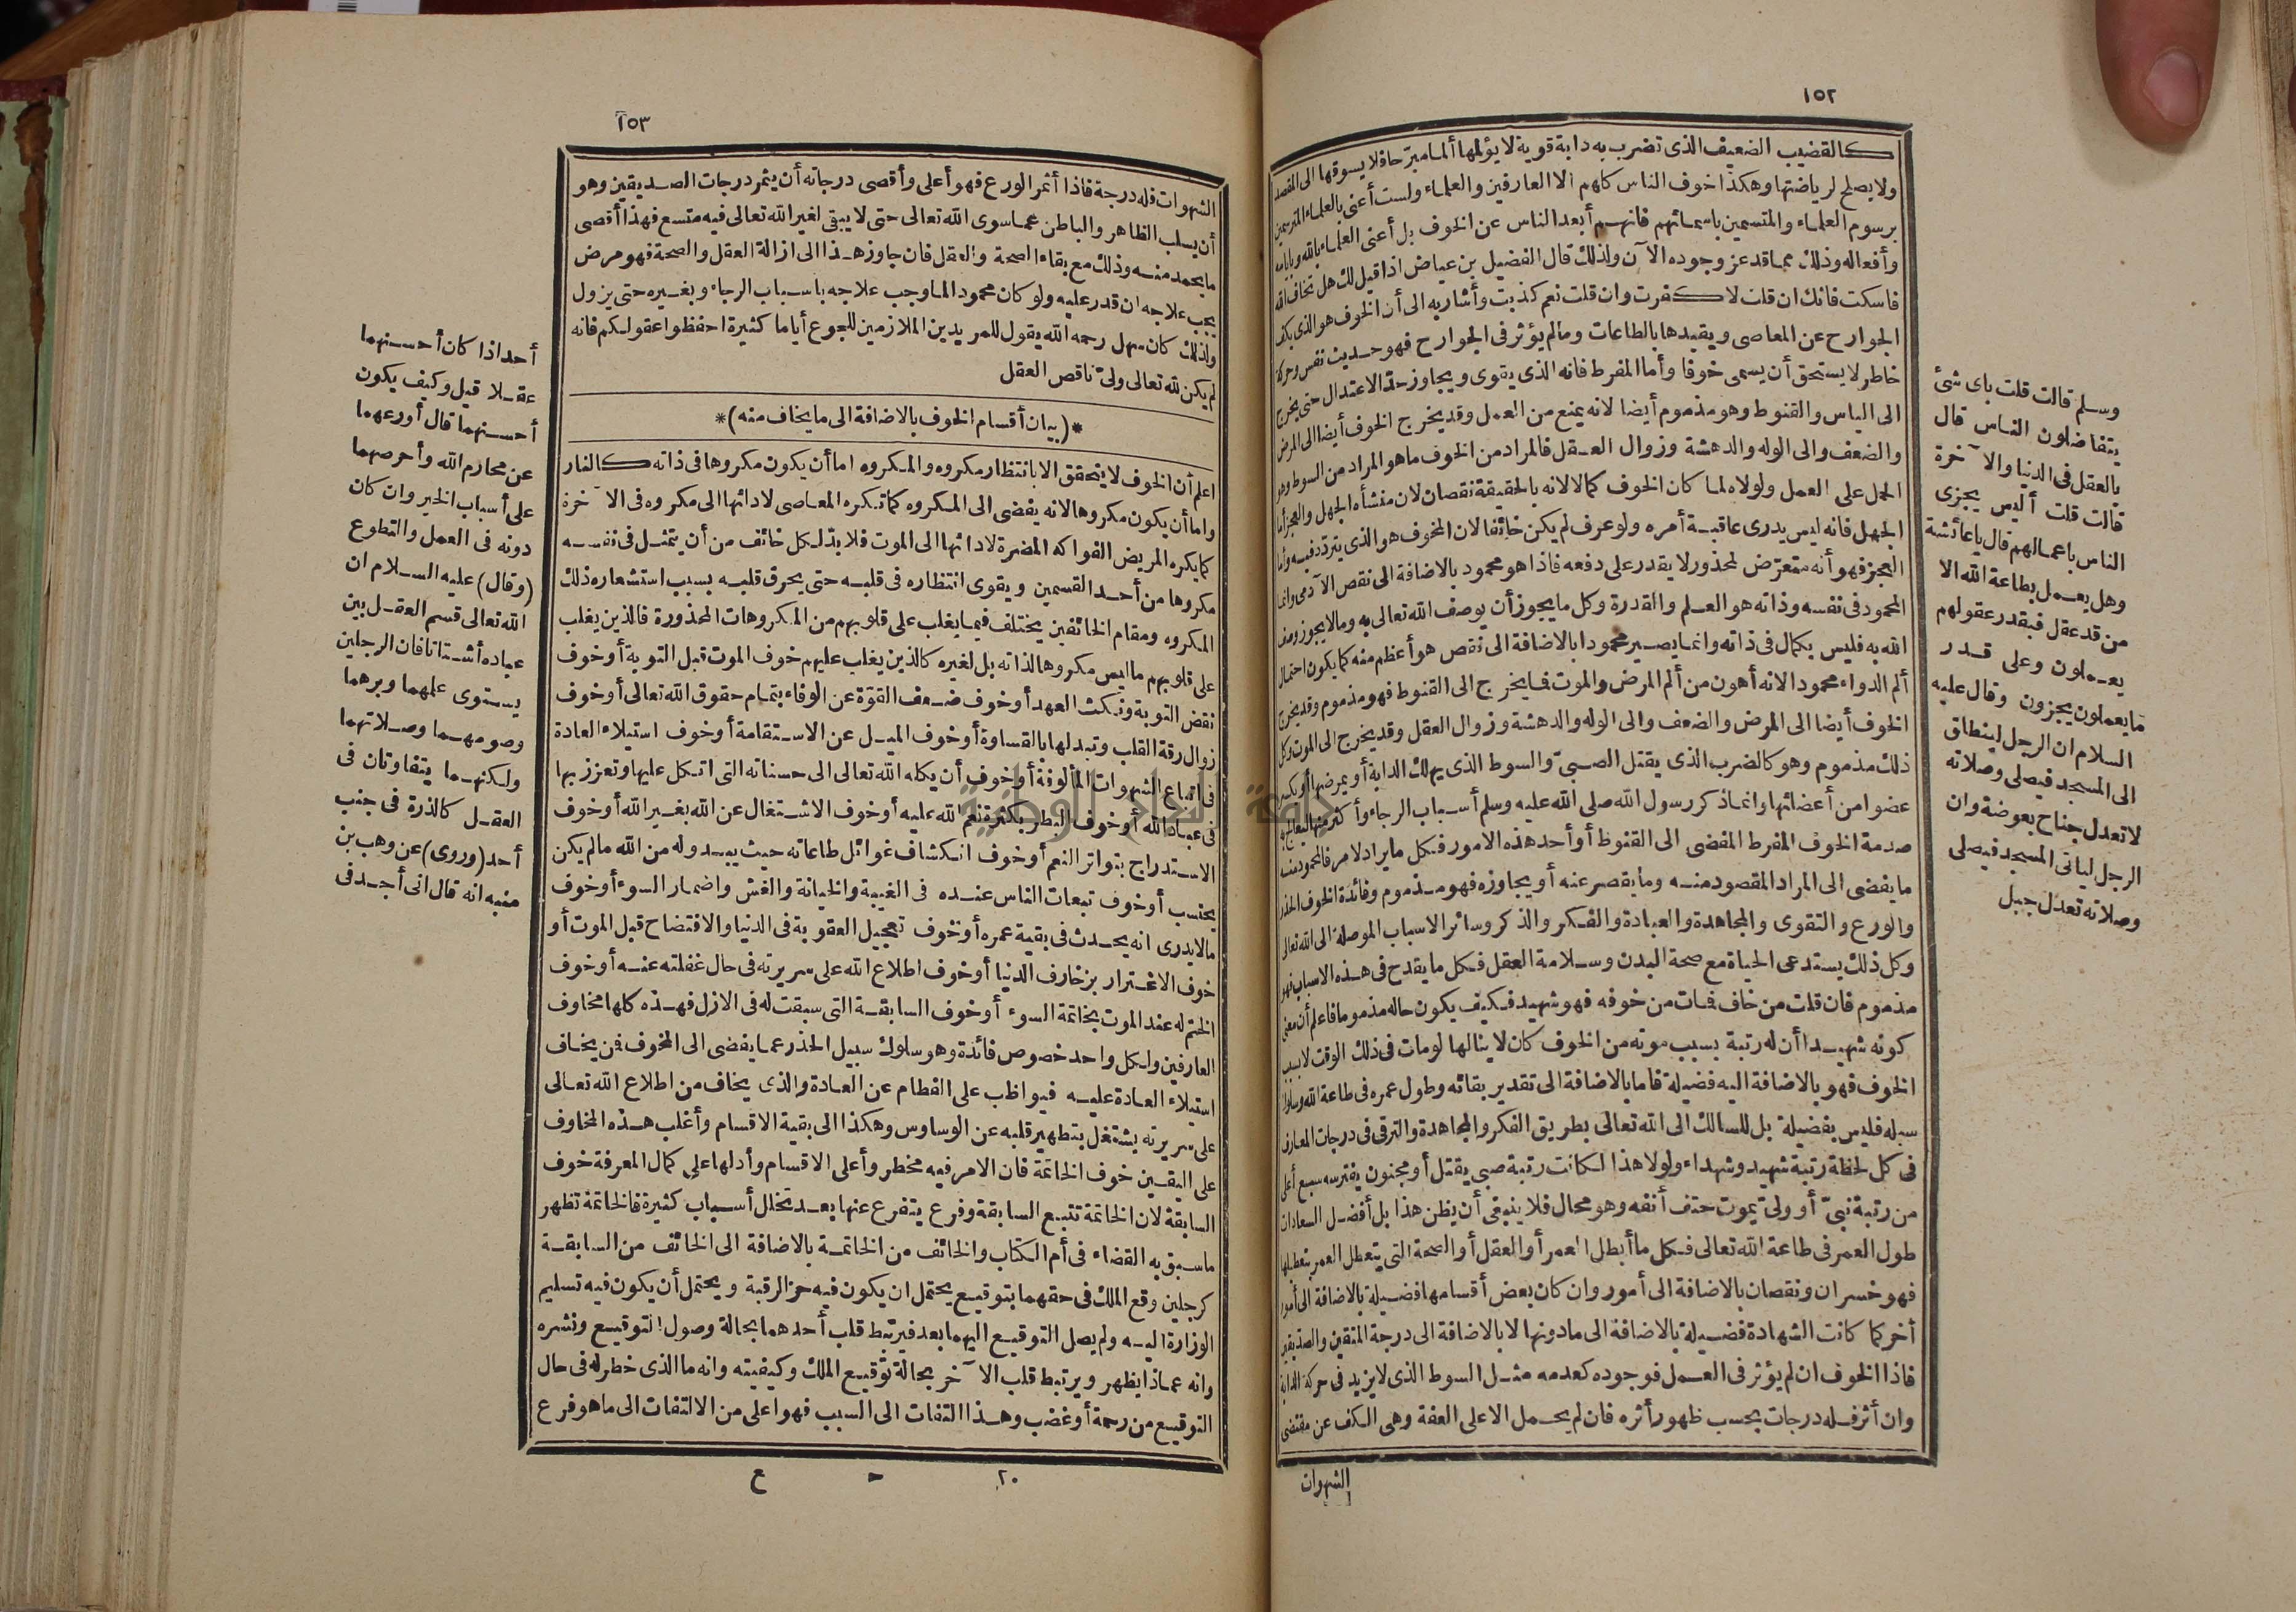 ١٥٢
كالقضيب الضعيف الذى تضرب به دابة قوية لا يؤلمها ألما مبرحا فلا يسوقها الى المقصد
ولا يصلح لرياضتها وهكذا خوف الناس كلهم الا العارفين والعلماء ولست أعنى بالعلماء المترسمين
برسوم العلماء والمتسمين باسمائهم فانهم أبعد الناس عن الخوف بل أعنى العلماء بالله وبايامه
وأفعاله وذلك مما قد عز وجوده الآن ولذلك قال الفضيل بن عياض اذا قيل لك هل تخاف الله
فاسكت فانك ان قلت لا كفرت وان قلت نعم كذبت وأشار به الى أن الخوف هو الذى يكف
الجوارح عن المعاصى ويقيدها بالطاعات ومالم يؤثر فى الجوارح فهو حديث نفس وحركة
خاطر لا يستحق أن يسمى خوفا وأما المفرط فانه الذى يقوى ويجاوز حد الاعتدال حتى يخرج
الى الياس والقنوط وهو مذموم أيضا لانه يمنع من العمل وقد يخرج الخوف أيضا الى المرض
والضعف والى الوله والدهشة وزوال العقل فالمراد من الخوف ما هو المراد من السوط وهو
الحمل على العمل ولولاه لما كان الخوف كمالا لانه بالحقيقة نقصان لان منشأه الجهل والعجز أما
الجهل فانه ليس يدرى عاقبة أمره ولو عرف لم يكن خائفا لان المخوف هو الذى يتردد فيه وأما
العجز فهو أنه متعرّض لمحذور لا يقدر على دفعه فاذا هو محمود بالاضافة الى نقص الآدمى وانما
المحمود فى نفسه وذاته هو العلم والقدرة وكل ما يجوز أن يوصف الله تعالى به ومالا يجوز وصف
الله به فليس بكمال فى ذاته وانما يصير محمودا بالاضافة الى نقص هو أعظم منه كما يكون احتمال
ألم الدواء محمودا لانه أهون من ألم المرض والموت فما يخرج الى القنوط فهو مذموم وقد يخرج
الخوف أيضا الى المرض والضعف والى الوله والدهشة وزوال العقل وقد يخرج الى الموت وكل
ذلك مذموم وهو كالضرب الذى يقتل الصبىّ والسوط الذى يهلك الدابة أو يمرضها أو يكسر
عضوا من أعضائها وانما ذكر رسول الله صلى الله عليه وسلم أسباب الرجاء وأكثر منها ليعالج به
صدمة الخوف المفرط المفضى الى القنوط أو أحد هذه الامور فكل ما يراد لامر فالمحمود منه
ما يفضى الى المراد المقصود منه وما يقصر عنه أو يجاوزه فهو مذموم وفائدة الخوف الحذر
والورع والتقوى والمجاهدة والعبادة والفكر والذكر وسائر الاسباب الموصلة الى الله تعالى
وكل ذلك يستدعى الحياة مع صحة البدن وسلامة العقل فكل ما يقدح فى هذه الاسباب فهو
مذموم فان قلت من خاف فمات من خوفه فهو شهيد فكيف يكون حاله مذموما فاعلم أن معنى
كونه شهيدا أن له رتبة بسبب موته من الخوف كان لا ينالها لو مات فى ذلك الوقت لا بسبب
الخوف فهو بالاضافة اليه فضيلة فاما بالاضافة الى تقدير بقائه وطول عمره فى طاعة الله وسلوك
سبله فليس بفضيلة بل للسالك الى الله تعالى بطريق الفكر والمجاهدة والترقى فى درجات المعارف
فى كل لحظة رتبة شهيد وشهداء ولولا هذا لكانت رتبة صبى يقتل أو مجنون يفترسه سبع أعلى
من رتبة نبىّ أو ولىّ يموت حتف أنفه وهو محال فلا ينبغى أن يظن هذا بل أفضل السعادات
طول العمر فى طاعة الله تعالى فكل ما أبطل العمر أو العقل أو الصحة التى يتعطل العمر بتعطلها
فهو خسران ونقصان بالاضافة الى أمور وان كان بعض أقسامها فضيلة بالاضافة الى أمور
أخر كما كانت الشهادة فضيلة بالاضافة الى مادونها لا بالاضافة الى درجة المتقين والصديقين
فاذا الخوف ان لم يؤثر فى العمل فوجوده كعدمه مثل السوط الذى لا يزيد فى حركة الدابة
وان أثر فله درجات بحسب ظهور أثره فان لم يحمل الا على العفة وهى الكف عن مقتضى
الشهوات
وسلم قالت قلت باى شئ
يتفاضلون الناس قال
بالعقل فى الدنيا والا خرة
قالت قلت أليس يجزى
الناس باعمالهم قال ياعائشة
وهل يعمل بطاعة الله الا
من قد عقل فبقدر عقولهم
يعملون وعلى قدر
ما يعملون يجزون وقال عليه
السلام ان الرجل لينطلق
الى المسجد فيصلى وصلاته
لا تعدل جناح بعوضة وان
الرجل لياتى المسجد فيصلى
وصلاته تعدل جبل
١٥٣
الشهوات فله درجة فاذا أثمر الورع فهو أعلى وأقصى درجاته أن يثمر درجات الصديقين وهو
أن يسلب الظاهر والباطن عما سوى الله تعالى حتى لا يبقى لغير الله تعالى فيه متسع فهذا أقصى
ما يحمد منه وذلك مع بقاء الصحة والعقل فان جاوز هذا الى ازالة العقل والصحة فهو مرض
يجب علاجه ان قدر عليه ولو كان محمودا لما وجب علاجه باسباب الرجاء وبغيره حتى يزول
ولذلك كان سهل رحمه الله يقول للمريدين الملازمين للجوع أياما كثيرة احفظوا عقولكم فانه
لم يكن لله تعالى ولىّ ناقص العقل
*(بيان أقسام الخوف بالاضافة الى ما يخاف منه)*
اعلم أن الخوف لا يتحقق الا بانتظار مكروه والمكروه اما أن يكون مكروها فى ذاته كالنار
واما أن يكون مكروها لانه يفضى الى المكروه كما تكره المعاصى لادائها الى مكروه فى الا خرة
كما يكره المريض الفواكه المضرة لادائها الى الموت فلا بدّ لكل خائف من أن يتمثل فى نفسه
مكروها من أحد القسمين ويقوى انتظاره فى قلبه حتى يحرق قلبه بسبب استشعاره ذلك
المكروه ومقام الخائفين يختلف فيما يغلب على قلوبهم من المكروهات المحذورة فالذين يغلب
على قلوبهم ما ليس مكروها لذاته بل لغيره كالذين يغلب عليهم خوف الموت قبل التوبة أو خوف
نقض التوبة ونكث العهد أو خوف ضعف القوّة عن الوفاء بتمام حقوق الله تعالى أو خوف
زوال رقة القلب وتبدلها بالقساوة أو خوف الميل عن الاستقامة أو خوف استيلاء العادة
فى اتباع الشهوات المألوفة أو خوف أن يكله الله تعالى الى حسناته التى اتكل عليها وتعزز بها
فى عباد الله أو خوف البطر بكثرة نعم الله عليه أو خوف الاشتغال عن الله بغير الله أو خوف
الاستدراج بتواتر النعم أو خوف انكشاف غوائل طاعاته حيث يبدو له من الله مالم يكن
يحتسب أو خوف تبعات الناس عنده فى الغيبة والخيانة والغش واضمار السوء أو خوف
مالا يدرى انه يحدث فى بقية عمره أو خوف تعجيل العقوبة فى الدنيا والافتضاح قبل الموت أو
خوف الاغترار بزخارف الدنيا أو خوف اطلاع الله على سريرته فى حال غفلته عنه أو خوف
الختم له عند الموت بخاتمة السوء أو خوف السابقة التى سبقت له فى الازل فهذه كلها مخاوف
العارفين ولكل واحد خصوص فائدة وهو سلوك سبيل الحذر عما يفضى الى المخوف فمن يخاف
استيلاء العادة عليه فيواظب على الفطام عن العادة والذى يخاف من اطلاع الله تعالى
على سريرته يشتغل بتطهير قلبه عن الوساوس وهكذا الى بقية الاقسام وأغلب هذه المخاوف
على اليقين خوف الخاتمة فان الامر فيه مخطر وأعلى الاقسام وأدلها على كمال المعرفة خوف
السابقة لان الخاتمة تتبع السابقة وفرع يتفرع عنها بعد تخلل أسباب كثيرة فالخاتمة تظهر
ما سبق به القضاء فى أم الكتاب والخائف من الخاتمة بالاضافة الى الخائف من السابقة
كرجلين وقع الملك فى حقهما بتوقيع يحتمل ان يكون فيه حز الرقبة ويحتمل أن يكون فيه تسليم
الوزارة اليه ولم يصل التوقيع اليهما بعد فيرتبط قلب أحدهما بحالة وصول التوقيع ونشره
وانه عماذا يظهر ويرتبط قلب الا خر بحالة توقيع الملك وكيفيته وانه ما الذى خطر له فى حال
التوقيع من رحمة أو غضب وهذا التفات الى السبب فهو اعلى من الالتفات الى ما هو فرع
٢٠ - ع
أحد اذا كان أحسنهما
عقلا قيل وكيف يكون
أحسنهما قال أورعهما
عن محارم الله وأحرصهما
على أسباب الخير وان كان
دونه فى العمل والتطوع
(وقال) عليه السلام ان
الله تعالى قسم العقل بين
عباده أشتاتا فان الرجلين
يستوى علمهما وبرهما
وصومهما وصلاتهما
ولكنهما يتفاوتان فى
العقل كالذرة فى جنب
أحد (وروى) عن وهب بن
منبه انه قال انى أجد فى